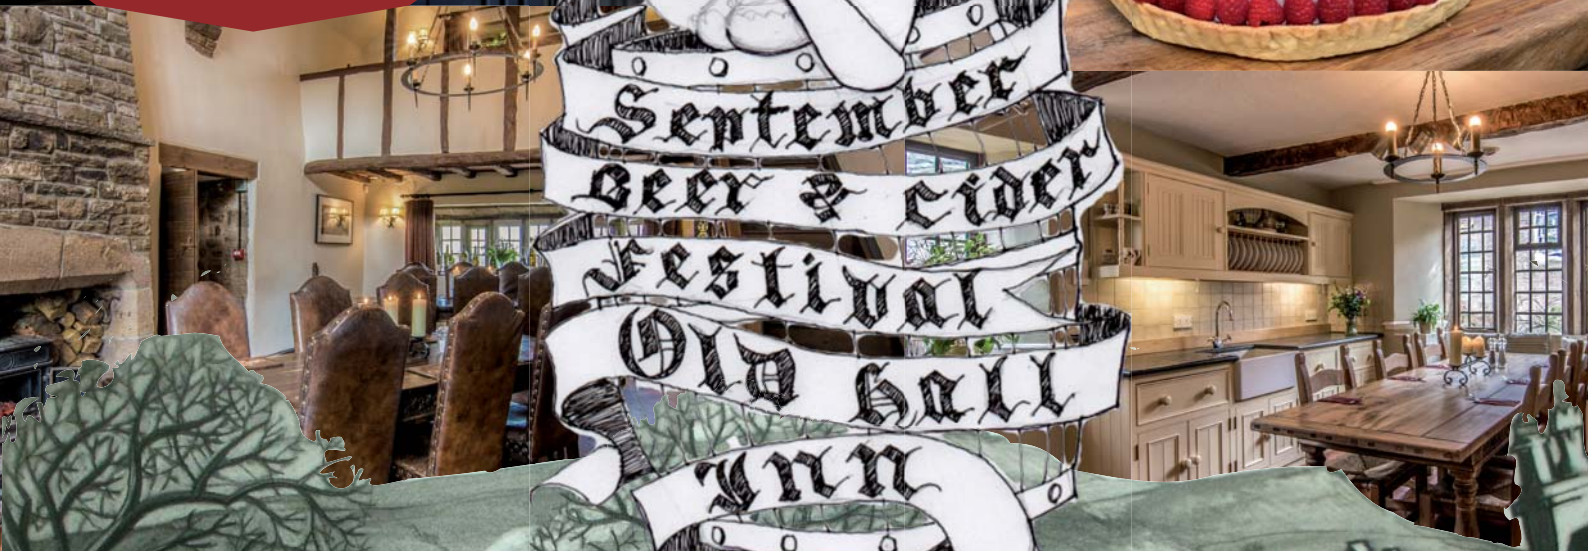 September
Beer & Cider
Festival
Old Hall
Inn